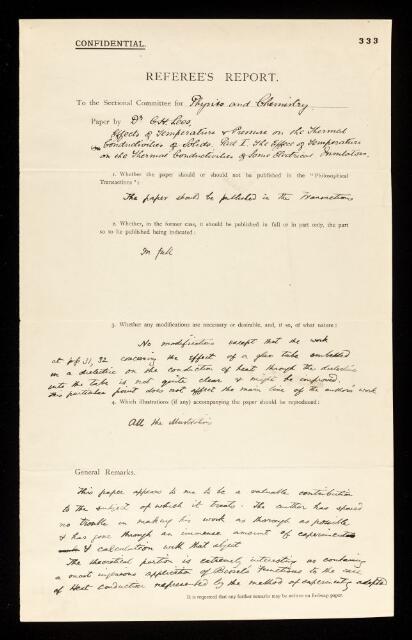 CONFIDENTIAL.
333
REFEREE'S REPORT.
To the Sectional Committee for Physics and Chemistry
Paper by Dr C. H. Lees,
Effects of Temperature & Pressure on the Thermal
Conductivities of Solids. Part I. The Effect of Temperature
on the Thermal Conductivities of Some Electrical Insulators.
1. Whether the paper should or should not be published in the "Philosophical
Transactions":
The paper should be published in the Transactions
2. Whether, in the former case, it should be published in full or in part only, the part
so to be published being indicated:
In full
3. Whether any modifications are necessary or desirable, and, if so, of what nature:
No modifications except that the work
at pp 31, 32 concerning the effect of a glass tube embedded
in a dielectric on the conduction of heat through the dielectric
into the tube is not quite clear & might be improved.
This particular point does not affect the main line of the author's work
4. Which illustrations (if any) accompanying the paper should be reproduced:
All the illustrations
General Remarks.
This paper appears to me to be a valuable contribution
to the subject of which it treats. The author has spared
no trouble in making his work as thorough as possible
& has gone through an immense amount of experiment
& calculation with that object
The theoretical portion is extremely interesting as containing
a most ingenious application of Bessel's functions to the case
of Heat conduction represented by the method of experiment adopted
It is requested that any further remarks may be written on foolscap paper.